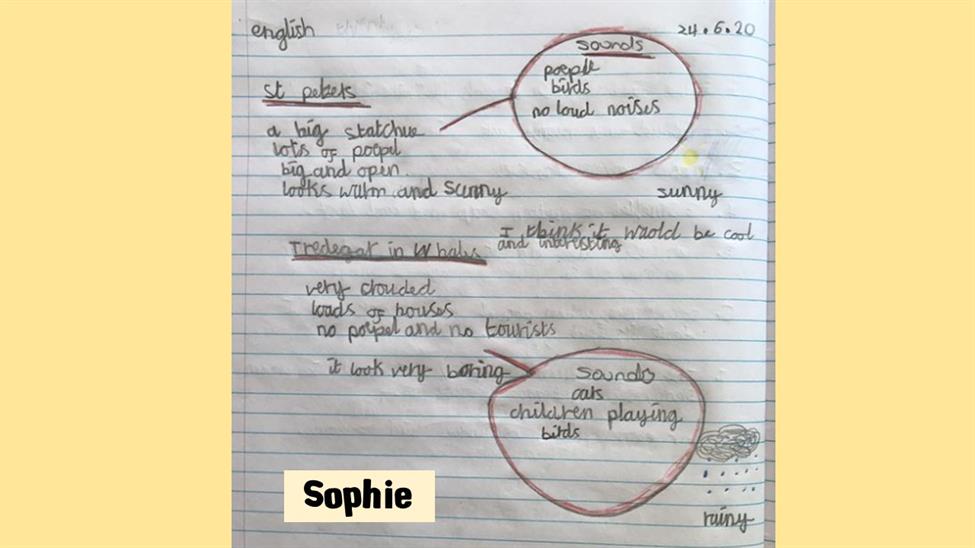 english
24.6.20
sounds
poeple
birds
no loud noises
St peters
a big statchue
lots of poepel
big and open
looks warm and sunny
sunny
I think it waold be cool
and interesting
Tredegar in Whals
very crouded
loads of houses
no poepel and no tourists
it look very boring
sounds
cats
children playing
birds
rainy
Sophie